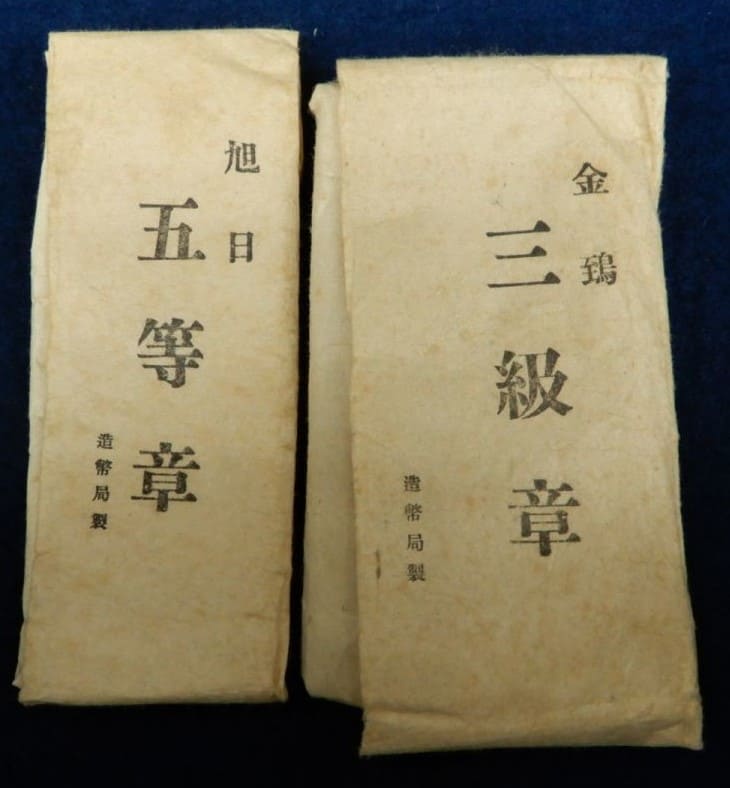 旭日
五等章
造幣局製
金鵄
三級章
造幣局製